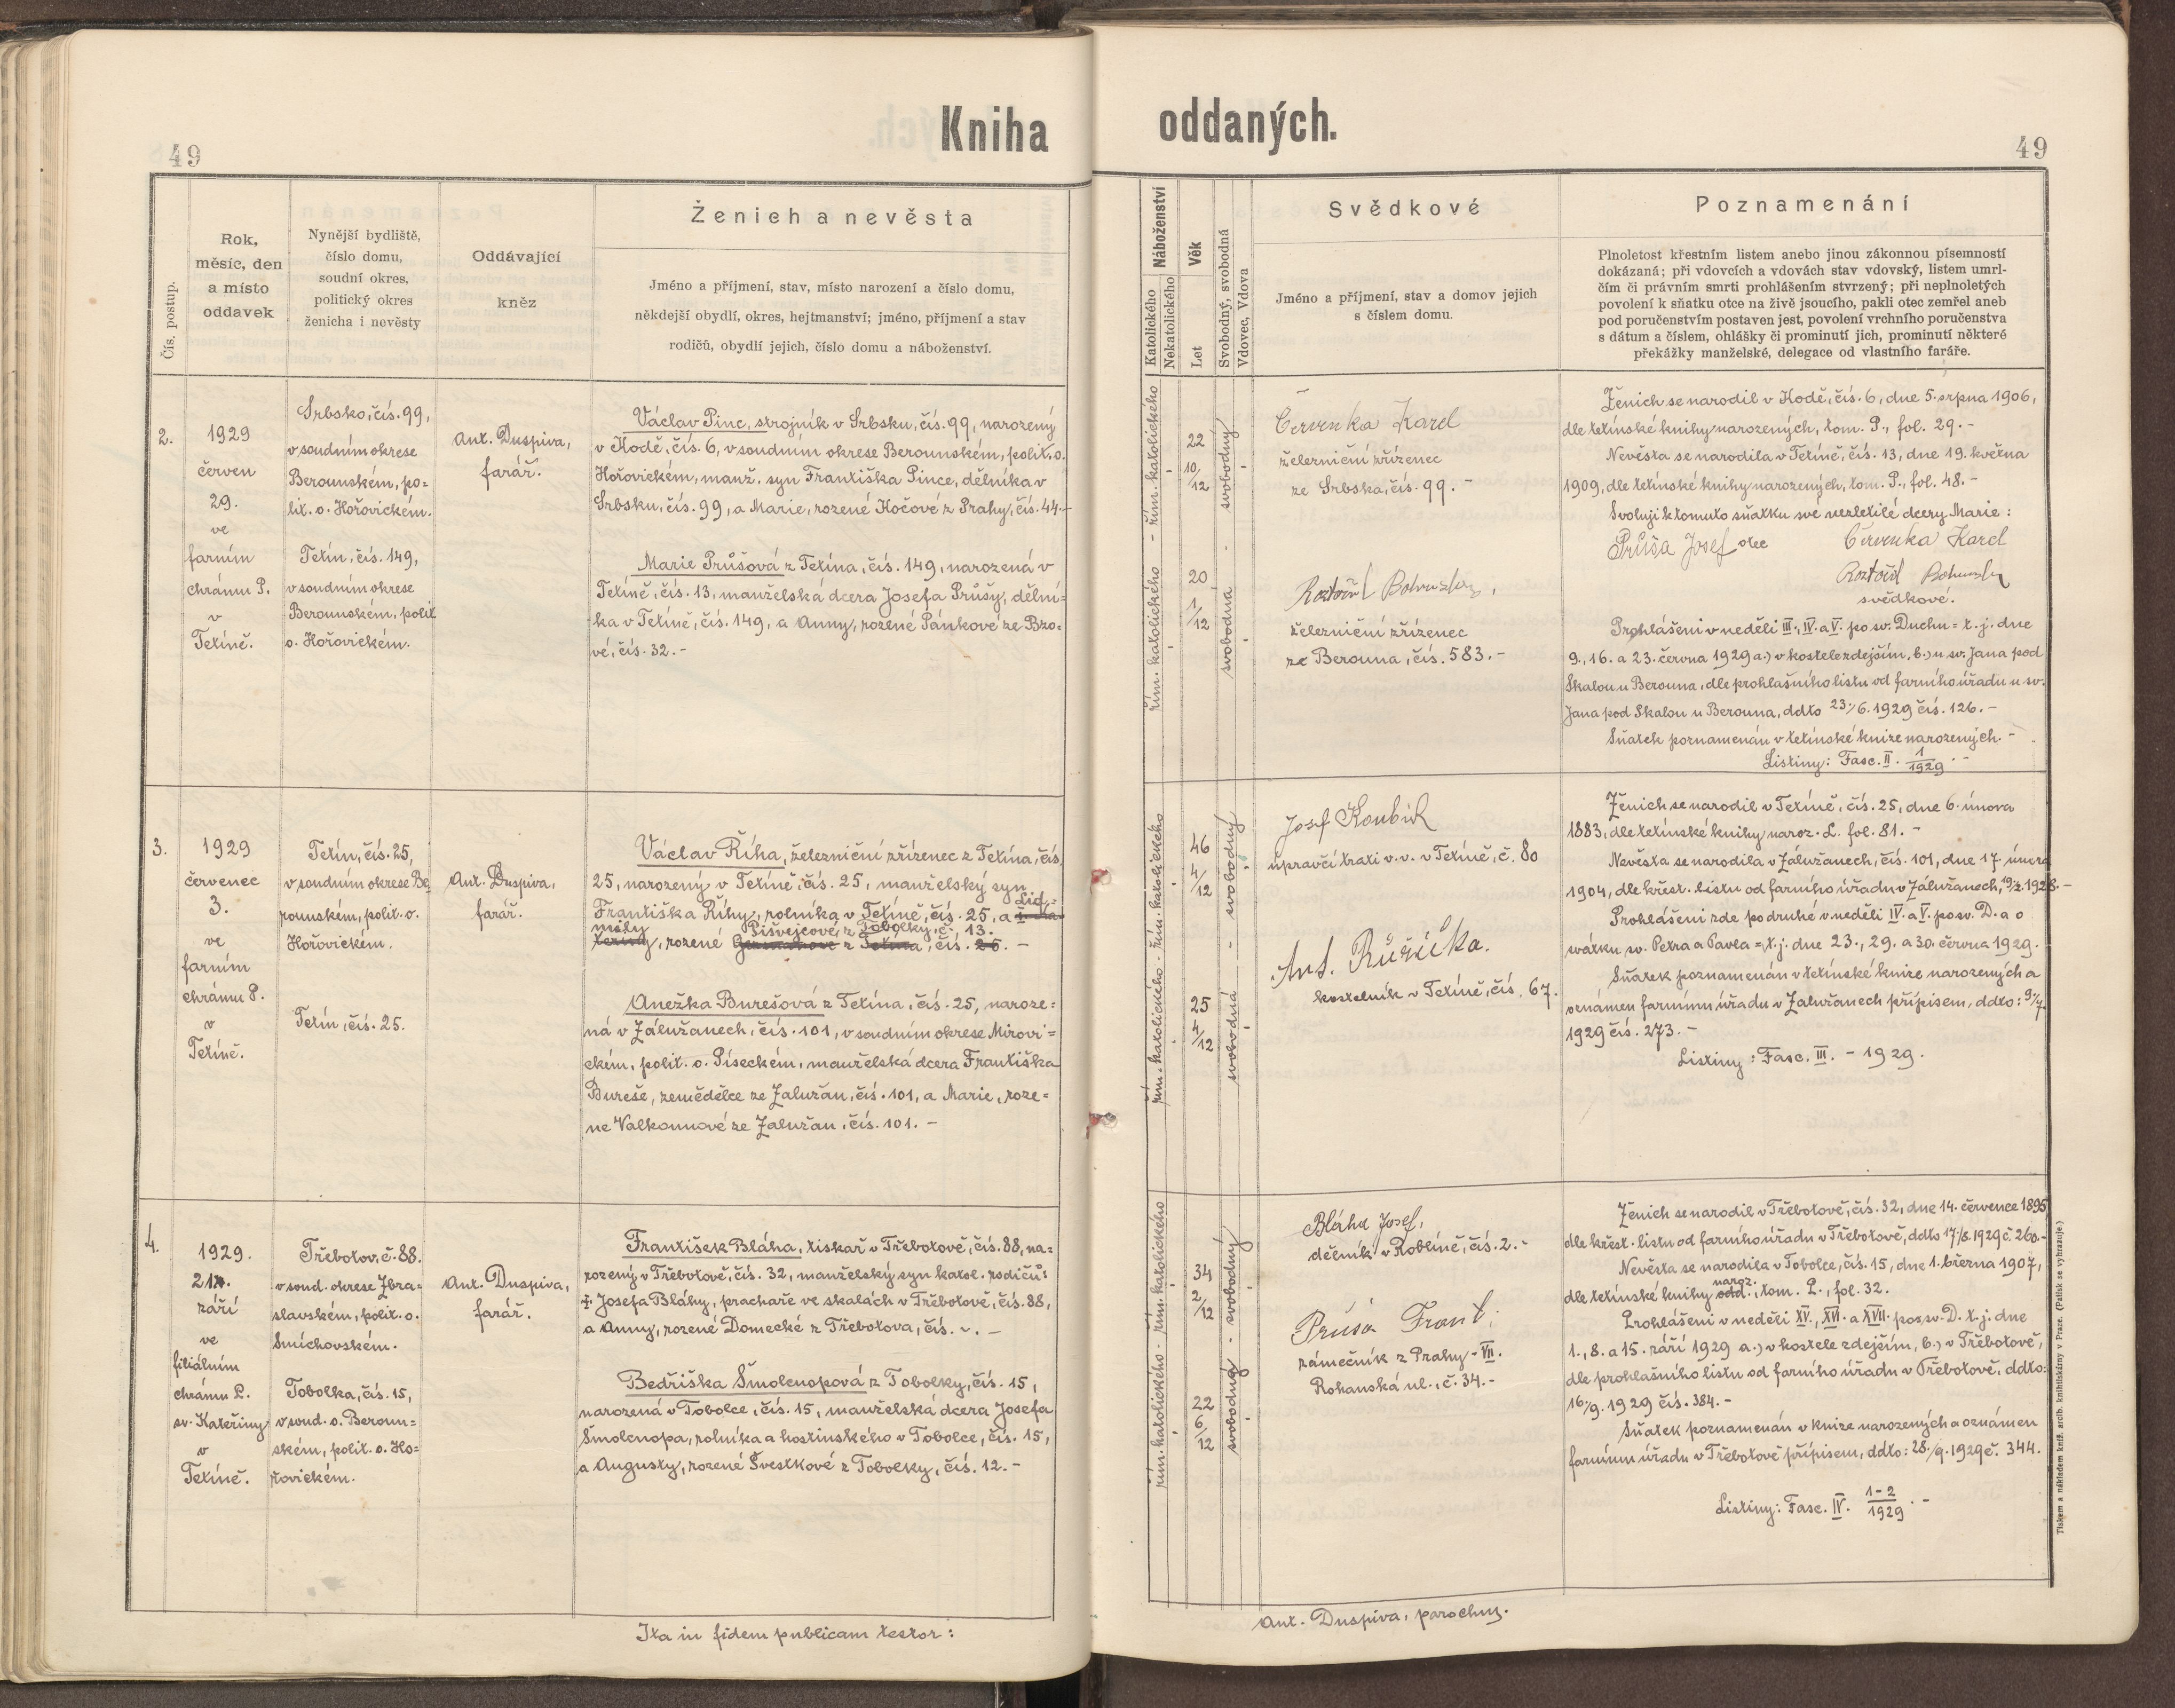 Kniha oddaných.
49
49
Čís. postup.
Rok,
měsíc, den
a místo
oddavek
Nynější bydliště,
číslo domu,
soudní okres,
politický okres
ženicha i nevěsty
Oddávající
kněz
Ženich a nevěsta
Jméno a příjmení, stav, místo narození a číslo domu,
někdejší obydlí, okres, hejtmanství; jméno, příjmení a stav
rodičů, obydlí jejich, číslo domu a náboženství.
Náboženství
Katolického
Nekatolického
Věk
Let
Svobodný, svobodná
Vdovec, Vdova
Svědkové
Jméno a příjmení, stav a domov jejich
s číslem domu.
Poznamenání
Plnoletost křestním listem anebo jinou zákonnou písemností
dokázaná; při vdovcích a vdovách stav vdovský, listem umrl-
čím či právním smrti prohlášením stvrzený; při neplnoletých
povolení k sňatku otce na živě jsoucího, pakli otec zemřel aneb
pod poručenstvím postaven jest, povolení vrchního poručenstva
s dátum a číslem, ohlášky či prominutí jich, prominutí některé
překážky manželské, delegace od vlastního faráře.
2.
1929
červen
29.
ve
farním
chrámu P.
v
Tetíně.
Srbsko, čís. 99,
v soudním okrese
Berounském, po=
lit. o. Hořovickém.
Tetín, čís. 149,
v soudním okrese
Berounském, polit.
o. Hořovickém.
Ant. Duspiva,
farář.
Václav Pinc, strojník v Srbsku, čís. 99, narozený
v Kodě, čís. 6, v soudním okrese Berounském, polit. o.
Hořovickém, manž. syn Františka Pince, dělníka v
Srbsku, čís. 99, a Marie, rozené Kočové z Prahy, čís. 44.-
Marie Průšová z Tetína, čís. 149, narozená v
Tetíně, čís. 13, manželská dcera Josefa Průšy, dělní-
ka v Tetíně, čís. 149, a Anny, rozené Pánkové ze Bzo-
vé, čís. 32. -
řím. katolického - řím. katolického
22
10/12
20
1/12
svobodný
svobodná
Červenka Karel
železniční zřízenec
ze Srbska, čís. 99. -
Roztočil Bohuslav,
železniční zřízenec
ze Berouna, čís. 583. -
Ženich se narodil v Kodě, čís. 6, dne 5. srpna 1906,
dle tetínské knihy narozených, tom. P., fol. 29. -
Nevěsta se narodila v Tetíně, čís. 13, dne 19. května
1909, dle tetínské knihy narozených, tom. P., fol. 48. -
Svoluji k tomuto sňatku své nezletilé dcery Marie:
Průša Josef otec Červenka Karel
Roztočil Bohuslav
svědkové.
Prohlášeni v neděli III., IV. a V. po sv. Duchu = t. j. dne
9., 16. a 23. června 1929 a.) v kostele zdejším, b.) u sv. Jana pod
Skalou u Berouna, dle prohlašního listu od farního úřadu u sv.
Jana pod Skalou u Berouna, ddto 23./6. 1929 čís. 126. -
Sňatek poznamenán v tetínské knize narozených. -
Listiny: Fasc. II. 1/1929. -
3.
1929
červenec
3.
ve
farním
chrámu P.
v
Tetíně.
Tetín, čís. 25,
v soudním okrese Be-
rounském, polit. o.
Hořovickém.
Tetín, čís. 25.
Ant. Duspiva,
farář.
Václav Říha, železniční zřízenec z Tetína, čís.
25, narozený v Tetíně, čís. 25, manželský syn
Františka Říhy, rolníka v Tetíně, čís. 25, a Lid=
mily Pišvejcové, z Tobolky, č. 13.
rozené z Tetína, čís. 26. -
Anežka Burešová z Tetína, čís. 25, naroze=
ná v Zálužanech, čís. 101, v soudním okrese Mirovi=
ckém, polit. o. Píseckém, manželská dcera Františka
Bureše, zemědělce ze Zalužan, čís. 101, a Marie, roze=
né Valkounové ze Zalužan, čís. 101. -
řím. katolického - řím. katolického
46
4/12
25
4/12
svobodný
svobodná
Josef Koubík
úpravčí trati v. v. v Tetíně, č. 80
Ant. Růžička.
kostelník v Tetíně, čís. 67.
Ženich se narodil v Tetíně, čís. 25, dne 6. února
1883, dle tetínské knihy naroz. L. fol. 81. -
Nevěsta se narodila v Zálužanech, čís. 101, dne 17. února
1904, dle křest. listu od farního úřadu v Zálužanech, 19/2. 1928. -
Prohlášeni zde po druhé v neděli IV. a V. po sv. D. a o
svátku sv. Petra a Pavla =, t. j. dne 23., 29. a 30. června 1929.
Sňatek poznamenán v tetínské knize narozených a
oznámen farnímu úřadu v Zalužanech přípisem, ddto: 9./7.
1929 čís. 273. -
Listiny: Fasc. III. - 1929.
4.
1929.
21.
září
ve
filiálním
chrámu P.
sv. Kateřiny
v
Tetíně.
Třebotov, č. 88.
v soud. okrese Zbra=
slavském, polit. o.
Smíchovském.
Tobolka, čís. 15,
v soud. o. Beroun=
ském, polit. o. Ho=
řovickém.
Ant. Duspiva,
farář.
František Bláha, tiskař v Třebotově, čís. 88, na=
rozený v Třebotově, čís. 32, manželský syn katol. rodičů:
‡ Josefa Bláhy, prachaře ve skalách v Třebotově, čís. 88,
a Anny, rozené Domecké z Třebotova, čís. ~. -
Bedřiška Šmolcnopová z Tobolky, čís. 15,
narozená v Tobolce, čís. 15, manželská dcera Josefa
Šmolcnopa, rolníka a hostinského v Tobolce, čís. 15,
a Augusty, rozené Švestkové z Tobolky, čís. 12. -
řím. katolického - řím. katolického
34
2/12
22
6/12
svobodný
svobodná
Bláha Josef,
dělník v Roblíně, čís. 2. -
Průša Frant.
zámečník z Prahy - VII.
Rohanská ul., č. 34. -
Ženich se narodil v Třebotově, čís. 32, dne 14. července 1895
dle křest. listu od farního úřadu v Třebotově, ddto 17./8. 1929 č. 260. -
Nevěsta se narodila v Tobolce, čís. 15, dne 1. března 1907,
dle tetínské knihy odd. naroz., tom. P., fol. 32.
Prohlášeni v neděli XV., XVI. a XVII. po sv. D. t. j. dne
1., 8. a 15. září 1929 a.) v kostele zdejším, b.) v Třebotově,
dle prohlašního listu od farního úřadu v Třebotově, ddto:
16/9. 1929 čís. 384. -
Sňatek poznamenán v knize narozených a oznámen
farnímu úřadu v Třebotově přípisem, ddto: 28./9. 1929 č. 344.
Listiny: Fasc. IV. 1-2/1929. -
Ita in fidem publicam testor:
Ant. Duspiva, parochus.
Tiskem a nákladem kníž. arcib. knihtiskárny v Praze. (Patisk se vyhrazuje.)